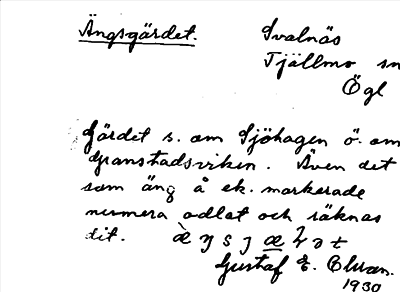 Ängsgärdet.
Svalnäs
Tjällmo sn
Ögl
Gärdet s. om Sjöhagen ö. om
Granstadsviken. Även det
som äng å ek. markerade
numera odlat och räknas
dit.
Gustaf E. Olsson.
1930